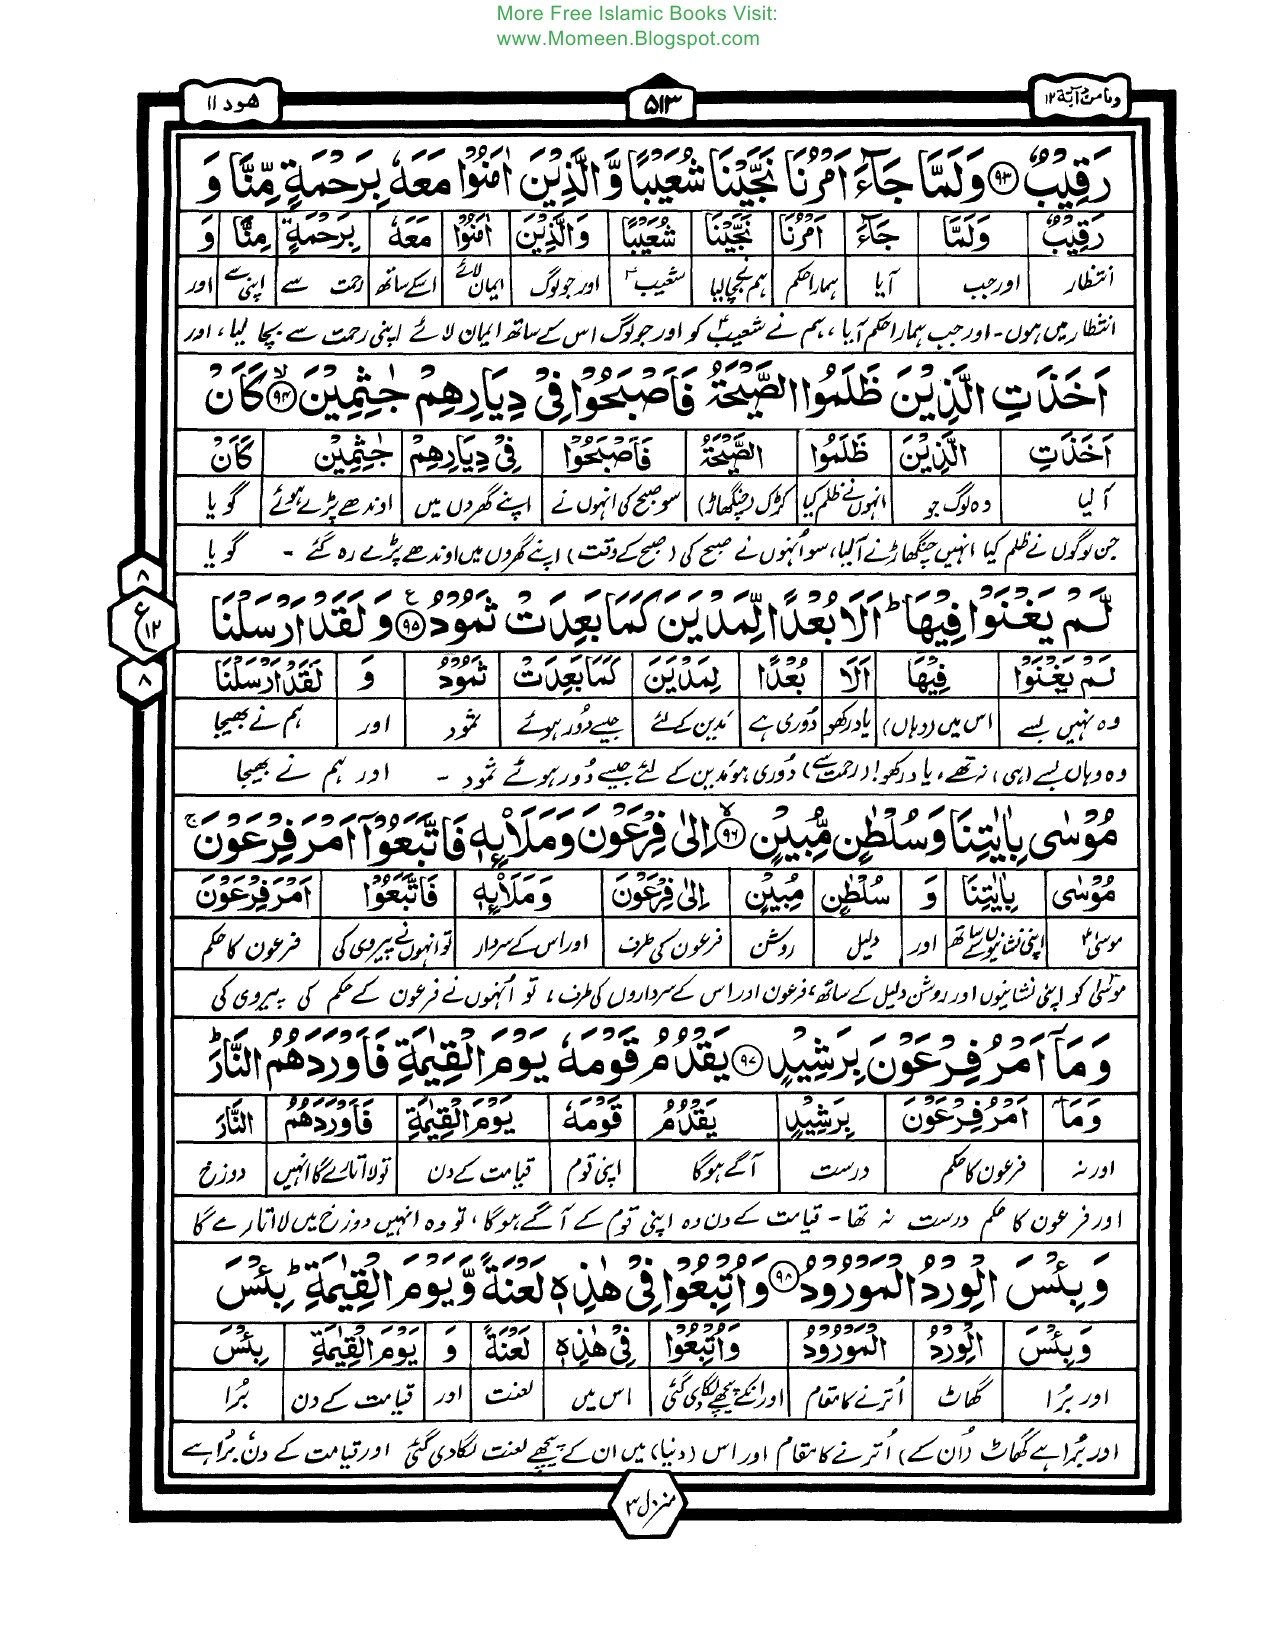 More Free Islamic Books Visit:
www.Momeen.Blogspot.com
وما من دآبة ۱۲
۵۱۳
ھود ۱۱
رَقِيْبٌ ۹۳ وَلَمَّا جَآءَ اَمْرُنَا نَجَّيْنَا شُعَيْبًا وَّالَّذِيْنَ اٰمَنُوْا مَعَهٗ بِرَحْمَةٍ مِّنَّا وَ
رَقِيْبٌ وَلَمَّا جَآءَ اَمْرُنَا نَجَّيْنَا شُعَيْبًا وَالَّذِيْنَ اٰمَنُوْا مَعَهٗ بِرَحْمَةٍ مِنَّا وَ
انتظار اور جب آیا ہمارا حکم ہم نے بچا لیا شعیبؑ اور جو لوگ ایمان لائے اسکے ساتھ رحمت سے اپنی سے اور
انتظار میں ہوں۔ اور جب ہمارا حکم آیا، ہم نے شعیبؑ کو اور جو لوگ اس کے ساتھ ایمان لائے اپنی رحمت سے بچا لیا، اور
اَخَذَتِ الَّذِيْنَ ظَلَمُوا الصَّيْحَةُ فَاَصْبَحُوْا فِيْ دِيَارِهِمْ جٰثِمِيْنَ ۹۴ۙ كَاَنْ
اَخَذَتِ الَّذِيْنَ ظَلَمُوا الصَّيْحَةُ فَاَصْبَحُوْا فِيْ دِيَارِهِمْ جٰثِمِيْنَ كَاَنْ
آلیا وہ لوگ جو انہوں نے ظلم کیا کڑک (چنگھاڑ) سو صبح کی انہوں نے اپنے گھروں میں اوندھے پڑے ہوئے گویا
جن لوگوں نے ظلم کیا انہیں چنگھاڑ نے آلیا، سو اُنہوں نے صبح کی (صبح کے وقت) اپنے گھروں میں اوندھے پڑے رہ گئے۔ گویا
۸
ع ۱۲
۸
لَّمْ يَغْنَوْا فِيْهَا ؕ اَلَا بُعْدًا لِّمَدْيَنَ كَمَا بَعِدَتْ ثَمُوْدُ ۹۵ۧ وَلَقَدْ اَرْسَلْنَا
لَمْ يَغْنَوْا فِيْهَا اَلَا بُعْدًا لِمَدْيَنَ كَمَا بَعِدَتْ ثَمُوْدُ وَ لَقَدْ اَرْسَلْنَا
وہ نہیں بسے اس میں (وہاں) یاد رکھو دُوری ہے مَدین کے لئے جیسے دُور ہوئے ثمود اور ہم نے بھیجا
وہ وہاں بسے (ہی) نہ تھے، یاد رکھو! (رحمت سے) دُوری ہو مَدین کے لئے جیسے دُور ہوئے ثمود۔ اور ہم نے بھیجا
مُوْسٰى بِاٰيٰتِنَا وَسُلْطٰنٍ مُّبِيْنٍ ۹۶ۙ اِلٰى فِرْعَوْنَ وَمَلَا۟ئِهٖ فَاتَّبَعُوْٓا اَمْرَ فِرْعَوْنَ ۚ
مُوْسٰى بِاٰيٰتِنَا وَ سُلْطٰنٍ مُبِيْنٍ اِلٰى فِرْعَوْنَ وَمَلَا۟ئِهٖ فَاتَّبَعُوْٓا اَمْرَ فِرْعَوْنَ
موسیٰؑ اپنی نشانیوں کے ساتھ اور دلیل روشن فرعون کی طرف اور اس کے سردار تو انہوں نے پیروی کی فرعون کا حکم
موسیٰؑ کو اپنی نشانیوں اور روشن دلیل کے ساتھ، فرعون اور اس کے سرداروں کی طرف، تو اُنہوں نے فرعون کے حکم کی پیروی کی
وَمَآ اَمْرُ فِرْعَوْنَ بِرَشِيْدٍ ۹۷ يَقْدُمُ قَوْمَهٗ يَوْمَ الْقِيٰمَةِ فَاَوْرَدَهُمُ النَّارَ ؕ
وَمَآ اَمْرُ فِرْعَوْنَ بِرَشِيْدٍ يَقْدُمُ قَوْمَهٗ يَوْمَ الْقِيٰمَةِ فَاَوْرَدَهُمُ النَّارَ
اور نہ فرعون کا حکم درست آگے ہوگا اپنی قوم قیامت کے دن تو لا اتارے گا انہیں دوزخ
اور فرعون کا حکم درست نہ تھا۔ قیامت کے دن وہ اپنی قوم کے آگے ہوگا، تو وہ انہیں دوزخ میں لا اتارے گا
وَبِئْسَ الْوِرْدُ الْمَوْرُوْدُ ۹۸ وَاُتْبِعُوْا فِيْ هٰذِهٖ لَعْنَةً وَّيَوْمَ الْقِيٰمَةِ ؕ بِئْسَ
وَبِئْسَ الْوِرْدُ الْمَوْرُوْدُ وَاُتْبِعُوْا فِيْ هٰذِهٖ لَعْنَةً وَ يَوْمَ الْقِيٰمَةِ بِئْسَ
اور بُرا گھاٹ اُترنے کا مقام اور انکے پیچھے لگادی گئی اس میں لعنت اور قیامت کے دن بُرا
اور بُرا ہے گھاٹ (اُن کے) اُترنے کا مقام اور اس (دنیا) میں ان کے پیچھے لعنت لگادی گئی اور قیامت کے دن، بُرا ہے
منزل ۳